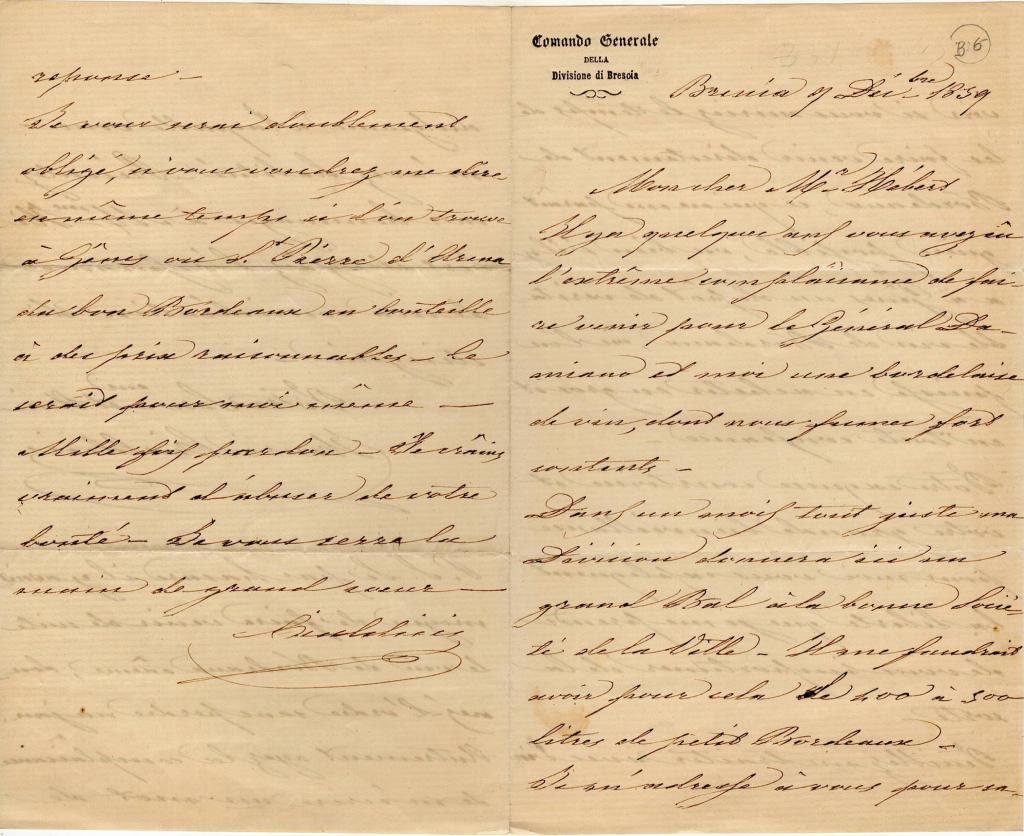 B.6
Comando Generale
DELLA
Divisione di Brescia
Brescia 7 Dé.bre 1859
Mon cher Mr Hébert
Il y a quelques ans vous avez eu
l'extrême complaisance de fai-
re venir pour le Général Da-
miano et moi une bordelaise
de vin, dont nous fumes fort
contents -
Dans un mois tout juste ma
Division donnera ici un
grand Bal à la bonne Socié-
té de la Ville - Il me faudrait
avoir pour cela de 400 à 500
litres de petit Bordeaux -
Je m'adresse à vous pour sa-
reponse -
Je vous serai doublement
obligé, si vous voudrez me dire
en même temps si l'on trouve
à Gênes ou St Pierre d'Arena
du bon Bordeaux en bouteille
à des prix raisonnables - Ce
serait pour moi même -
Mille fois pardon - Je crains
vraiment d'abuser de votre
bonté - Je vous serre la
main de grand coeur -
Cialdini